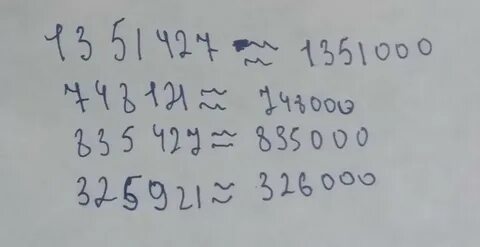 1351427 ≈ 1351000
748121 ≈ 748000
835427 ≈ 835000
325921 ≈ 326000